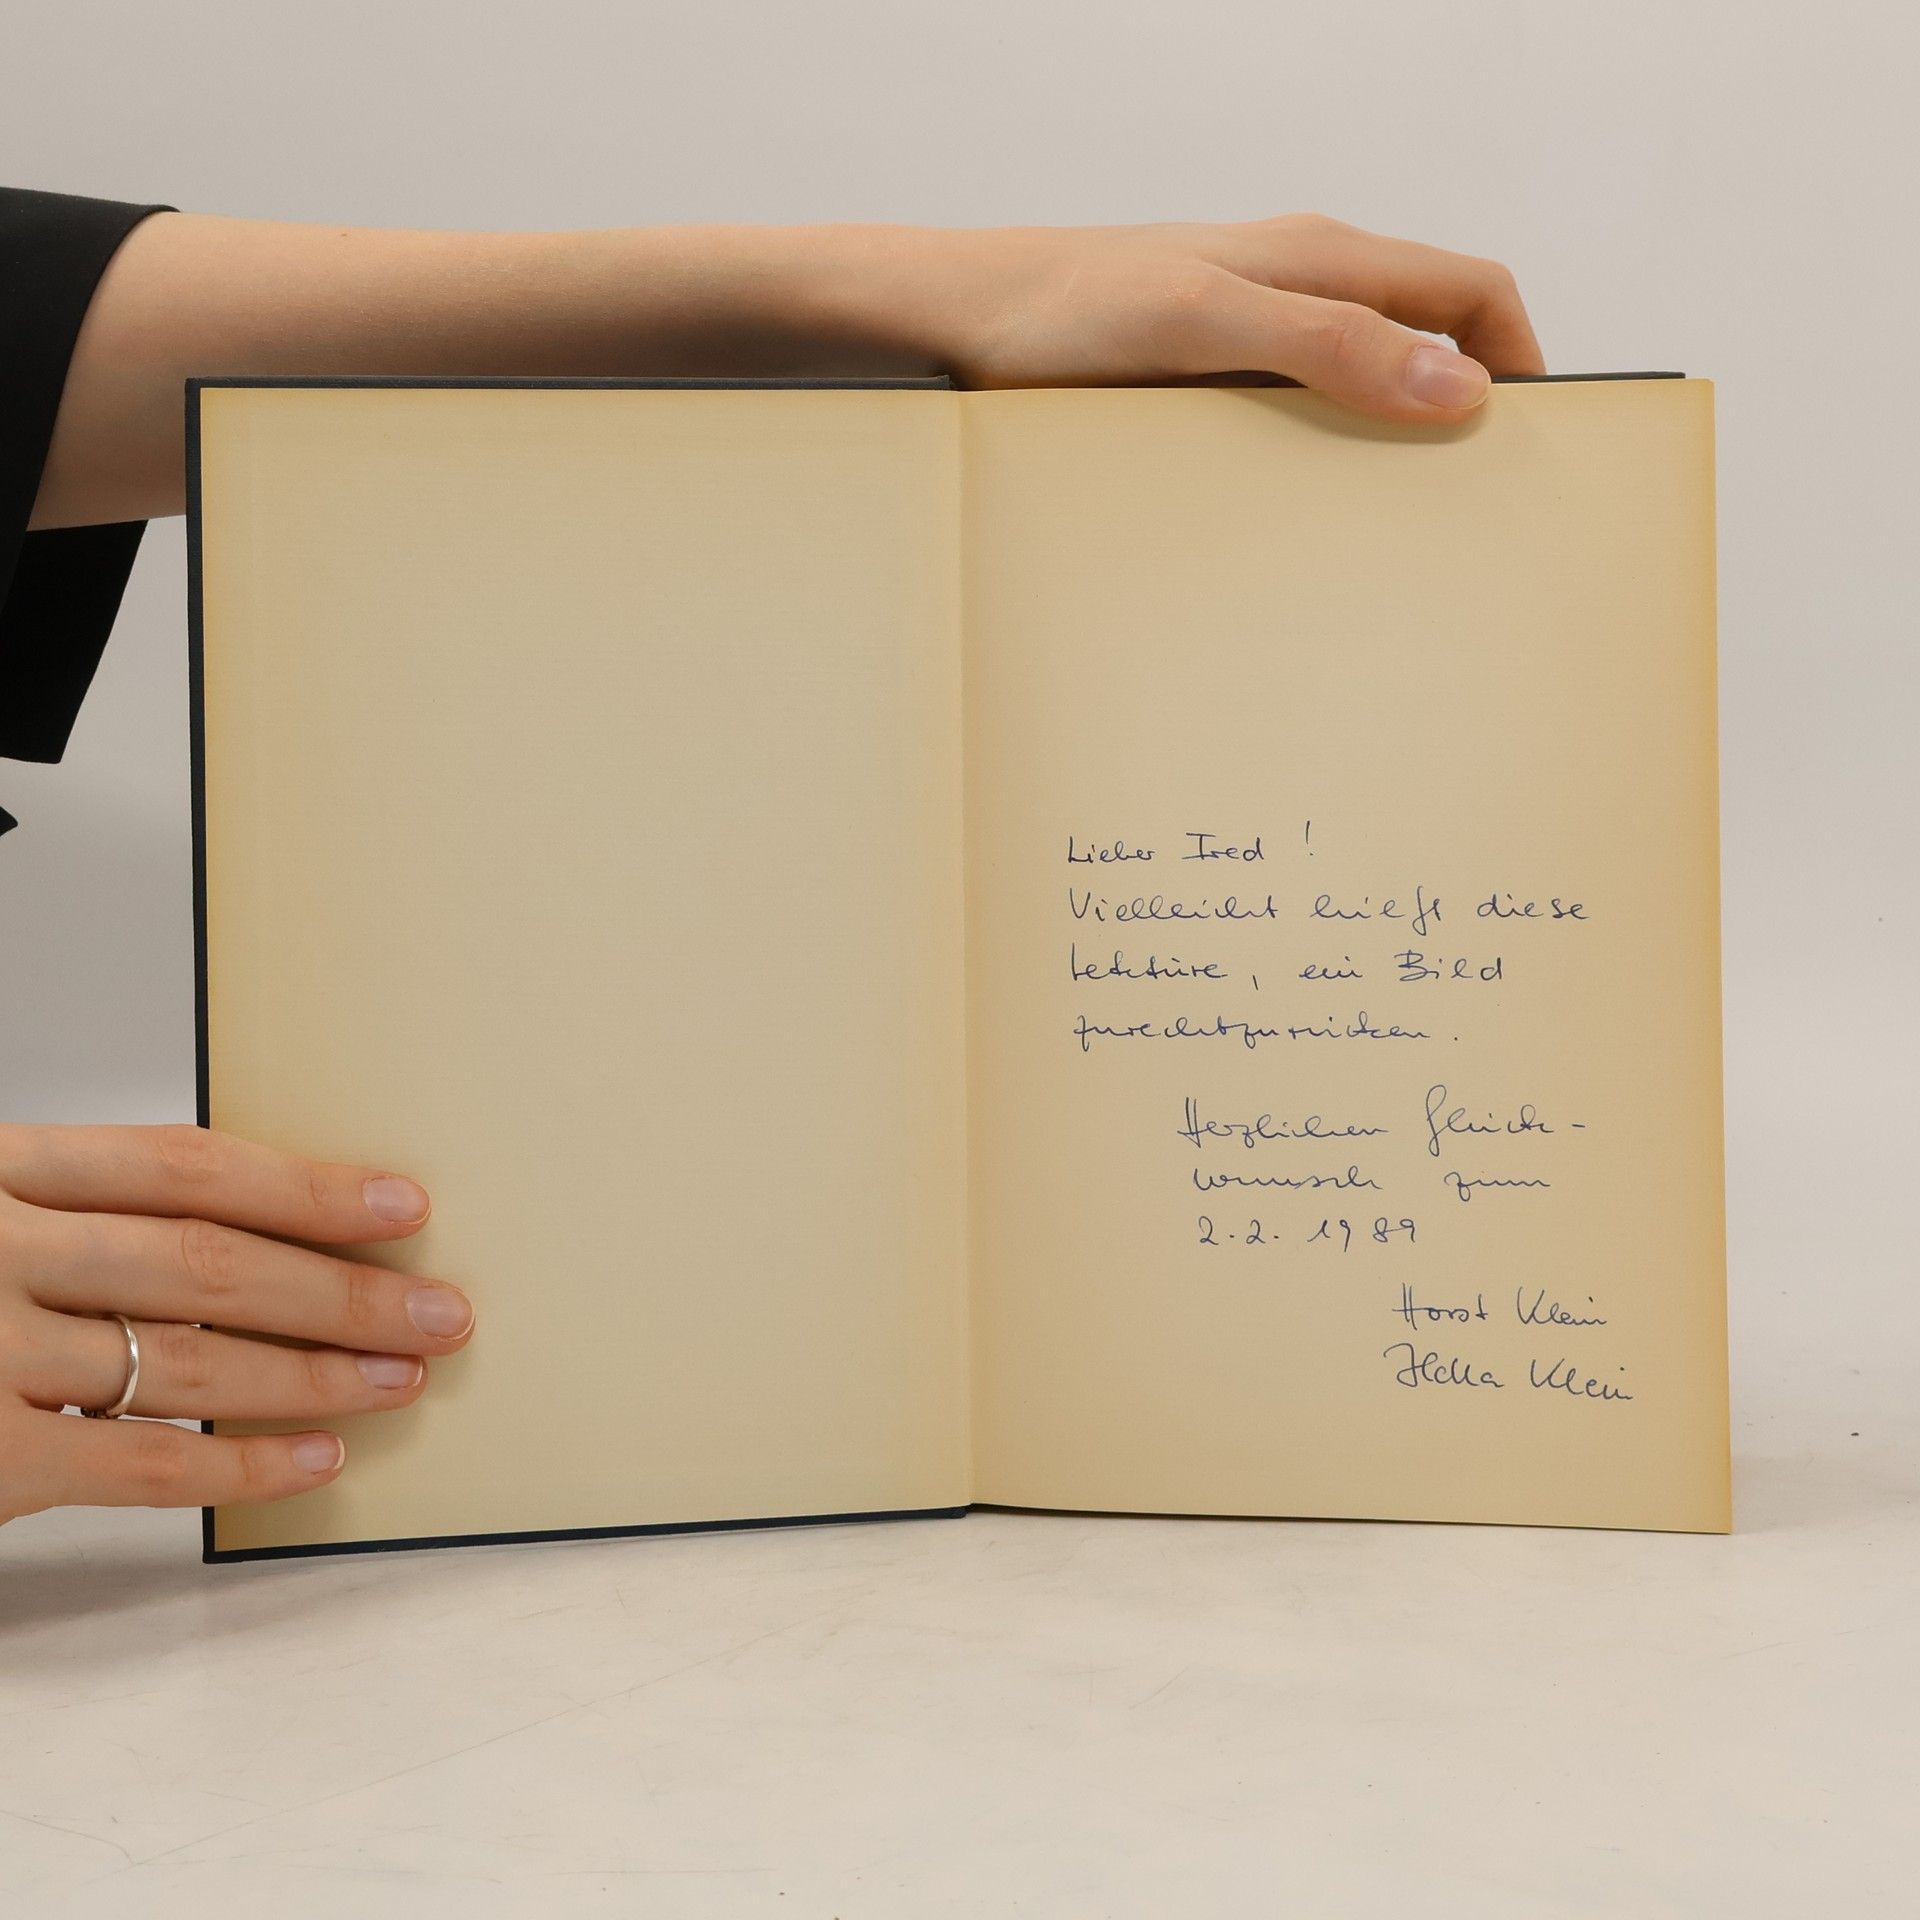 Lieber Fred !
Vielleicht hilft diese
Lektüre, ein Bild
zurechtzurücken.
Herzlichen Glück-
wunsch zum
2.2. 1989
Horst Klein
Hella Klein